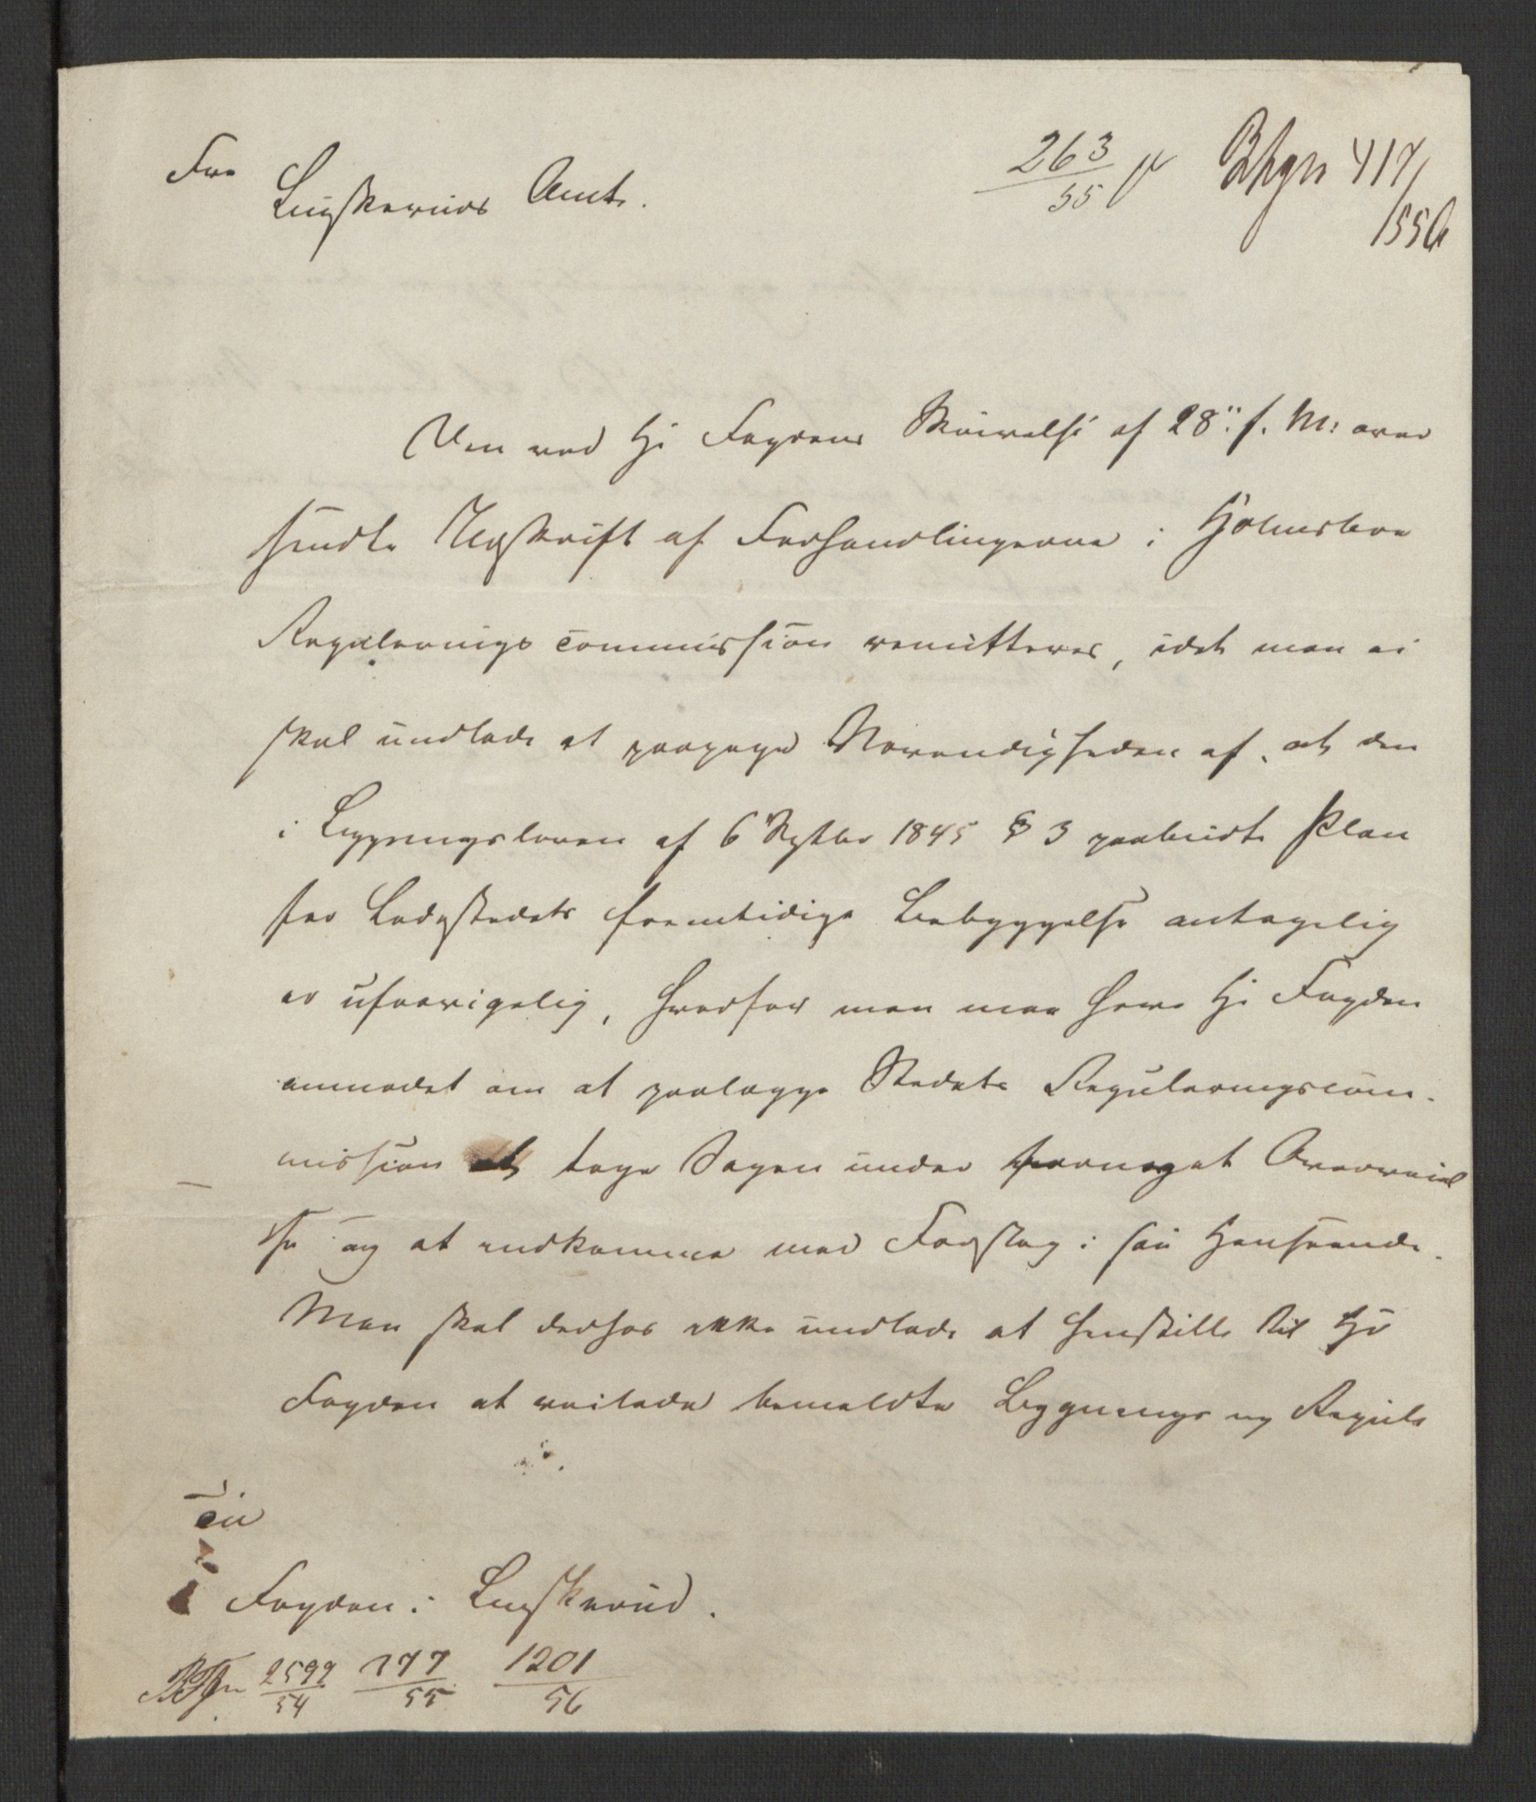 Fra
Buskeruds Amt.
263/55
Bkgn 417/1556
Den ved Hr Fogdens Skrivelse af 28de f. M: over
sendte Udskrift af Forhandlingerne i Holmsbo
Regulerings commission remitteres, idet man ei
skal undlade at paapege Nødvendigheden af, at den
i Bygningsloven af 6 Septbr 1845 § 3 paabudte Plan
for Ladestedets fremtidige Bebyggelse antagelig
er ufravigelig, hvorfor man maa have Hr Fogden
anmodet om at paalægge Stedets Reguleringscom-
mission at tage Sagen under fornøget Overveiel
se og at indkomme med Forslag i saa Henseende.
Man skal derhos ikke undlade at henstille til Hr
Fogden at veilede bemeldte Bygnings og Regule
Til
Fogden i Buskerud.
2599/54 177/55 1201/56